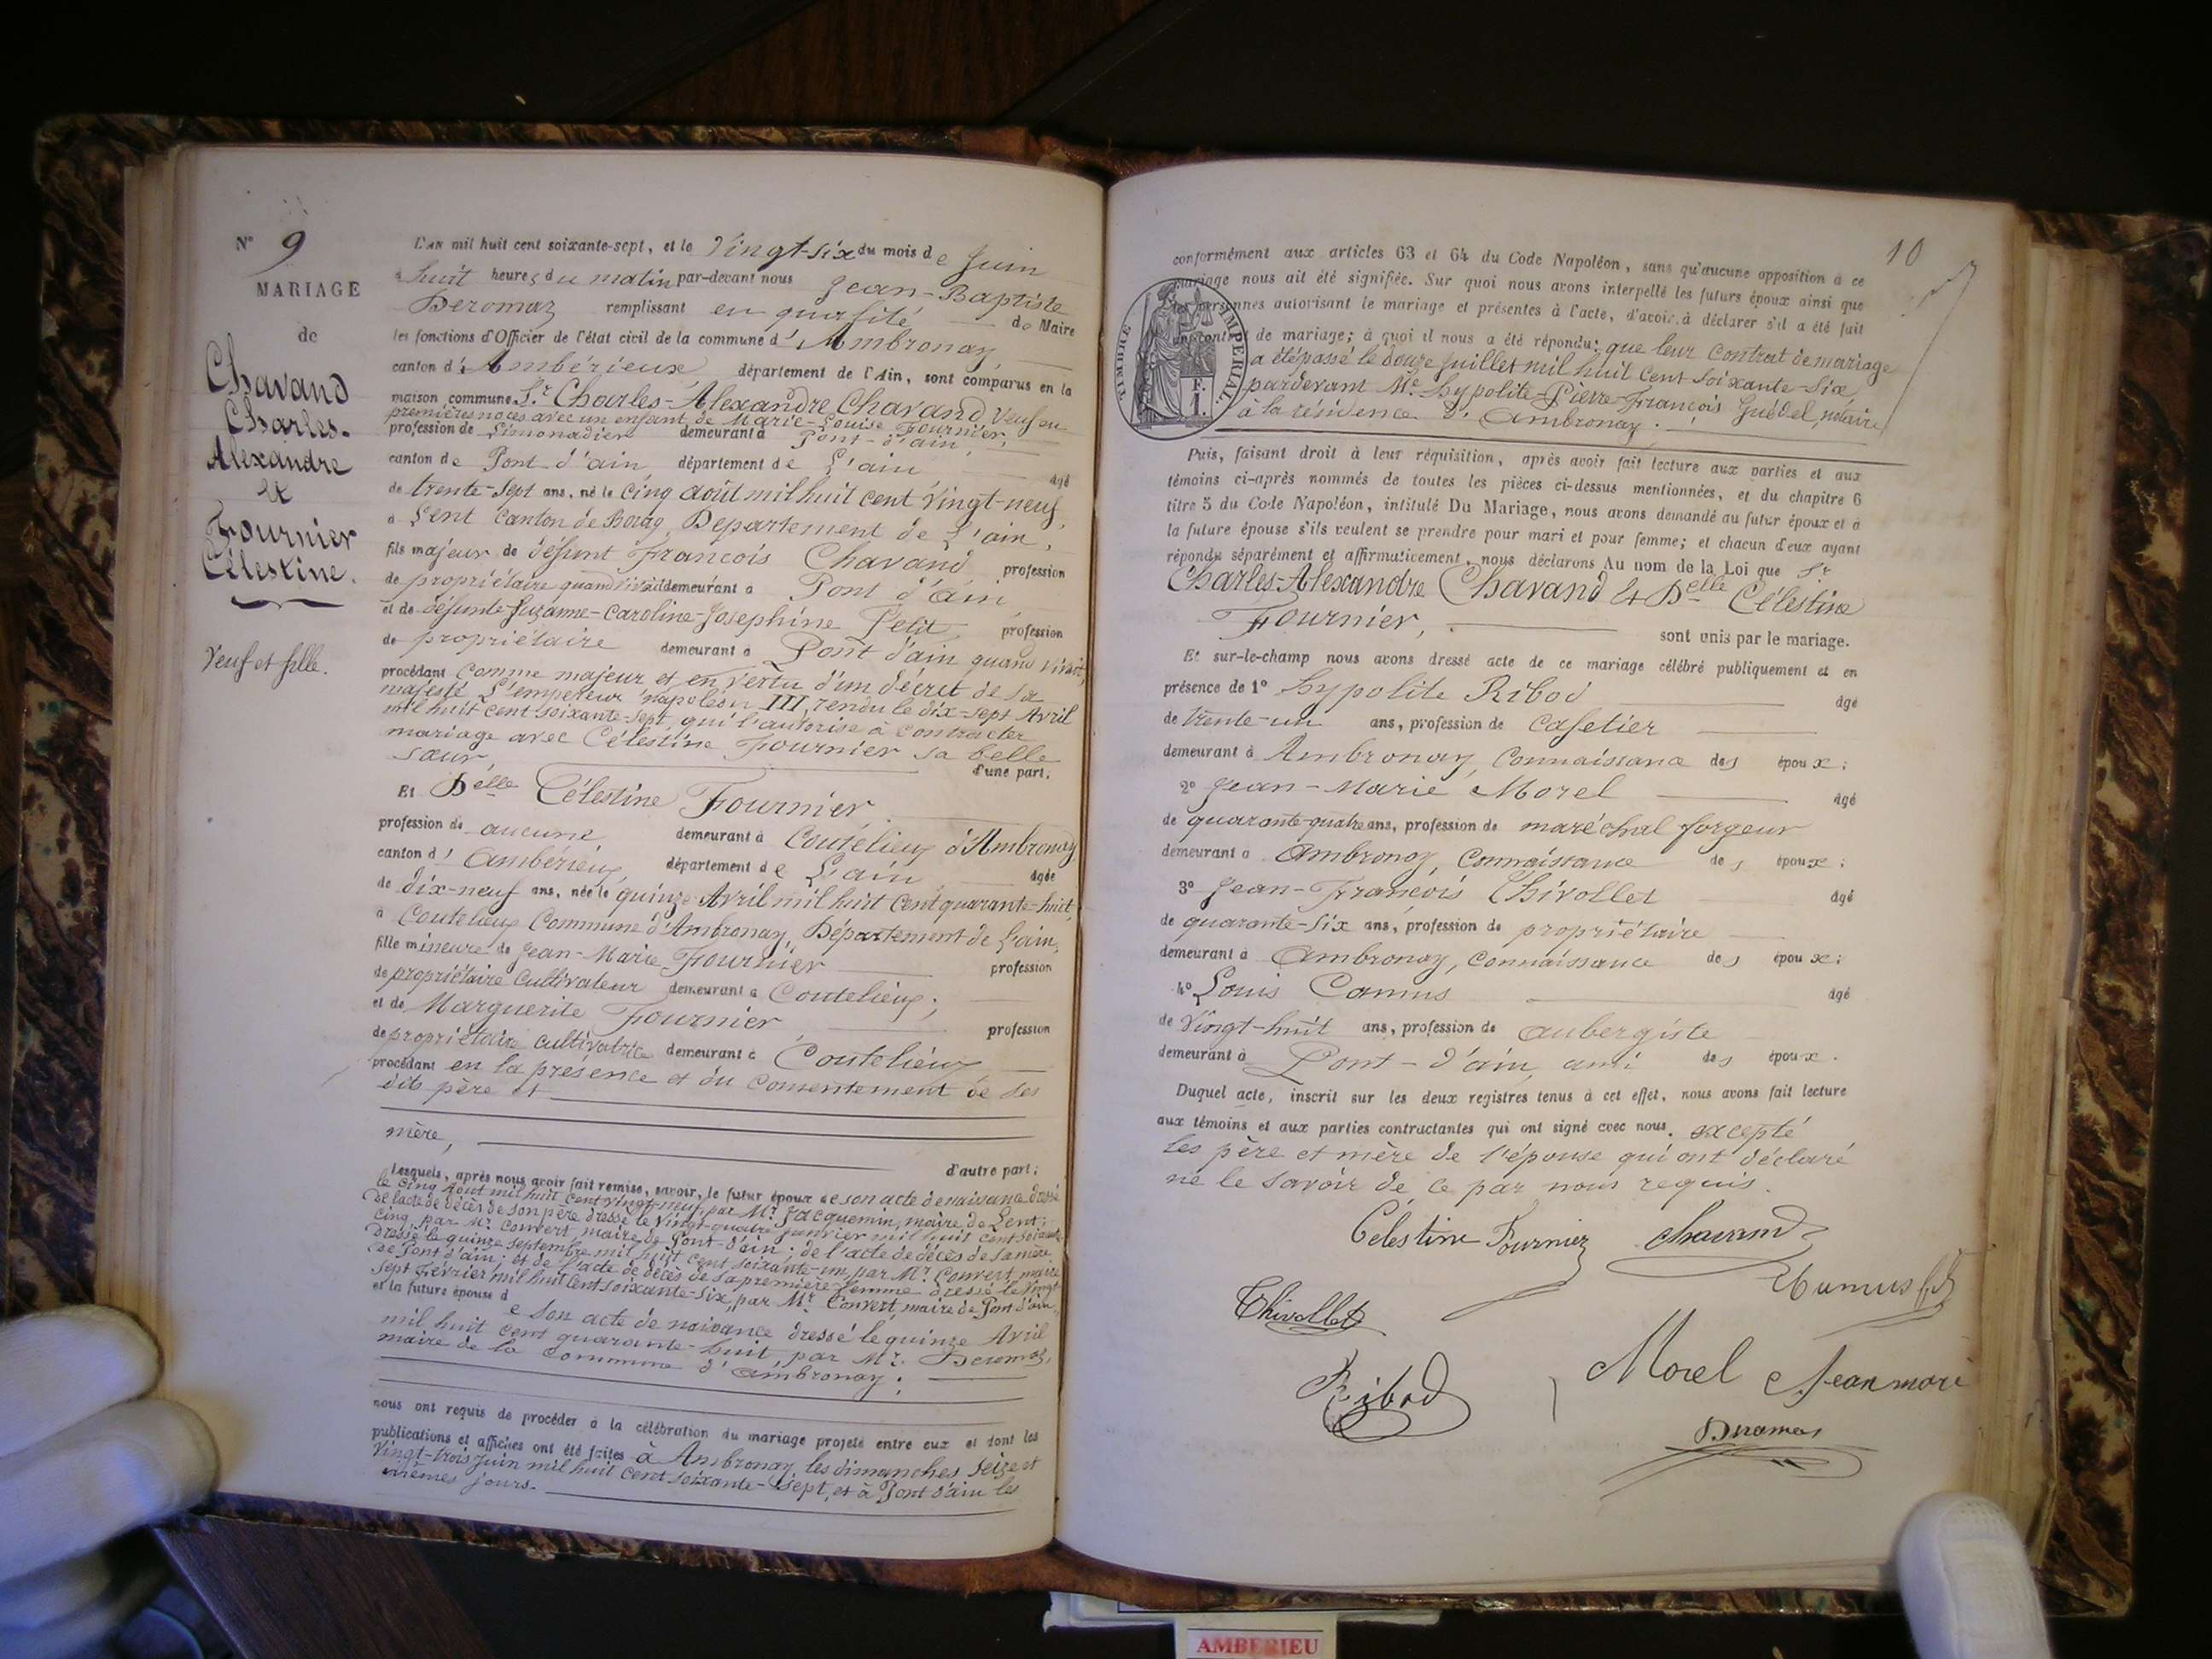 N° 9
MARIAGE
de
Chavand
Charles-
Alexandre
et
Fournier
Célestine.
Veuf et fille.
L'AN mil huit cent soixante-sept, et le Vingt-six du mois de Juin
à huit heures du matin par-devant nous Jean-Baptiste
Deromaz remplissant en qualité de Maire
les fonctions d'Officier de l'état civil de la commune d'Ambronay,
canton d'Ambérieux département de l'Ain, sont comparus en la
maison commune Sr Charles-Alexandre Chavand, veuf en
premières noces avec un enfant, de Marie-Louise Fournier,
profession de Limonadier demeurant à Pont-d'ain,
canton de Pont-d'ain département de L'ain âgé
de trente-sept ans, né le cinq août mil huit cent vingt-neuf,
à Lent canton de Bourg, Département de L'ain,
fils majeur de défunt François Chavand profession
de propriétaire quand vivait demeurant à Pont d'ain,
et de défunte Suzanne-Caroline-Josephine Petit, profession
de propriétaire demeurant à Pont d'ain quand vivait,
procédant comme majeur et en vertu d'un décret de Sa
majesté L'empereur Napoléon III, rendu le dix-sept Avril
mil huit cent soixante-sept, qui l'autorise à contracter
mariage avec Célestine Fournier sa belle
sœur, d'une part,
Et Delle Célestine Fournier,
profession de aucune demeurant à Coutelieux d'Ambronay
canton d'Ambérieux, département de L'ain âgée
de dix-neuf ans, née le quinze Avril mil huit cent quarante-huit,
à Coutelieux Commune d'Ambronay, Département de L'ain,
fille mineure de Jean-Marie Fournier profession
de propriétaire cultivateur demeurant à Coutelieux;
et de Marguerite Fournier profession
de propriétaire cultivatrice demeurant à Coutelieux
procédant en la présence et du consentement de ses
dits père et
mère, d'autre part;
Lesquels, après nous avoir fait remise, savoir, le futur époux de son acte de naissance dressé
le cinq Août mil huit cent vingt-neuf, par Mr Jacquemin, maire de Lent;
de l'acte de décès de son père dressé le vingt-quatre Janvier mil huit cent soixante
cinq par Mr Convert, maire de Pont-d'ain; de l'acte de décès de sa mère
dressé le quinze septembre mil huit cent soixante-un, par Mr Convert, maire
de Pont d'ain; et de l'acte de décès de sa première femme dressé le vingt
sept Février mil huit cent soixante-six, par Mr Convert, maire de Pont d'ain,
et la future épouse de son acte de naissance dressé le quinze Avril
mil huit cent quarante-huit, par Mr Deromaz,
maire de la commune d'Ambronay;
nous ont requis de procéder à la célébration du mariage projeté entre eux et dont les
publications et affiches ont été faites à Ambronay les dimanches seize et
vingt-trois Juin mil huit cent soixante-sept, et à Pont d'ain les
mêmes jours.
10
conformément aux articles 63 et 64 du Code Napoléon, sans qu'aucune opposition à ce
mariage nous ait été signifiée. Sur quoi nous avons interpellé les futurs époux ainsi que
les personnes autorisant le mariage et présentes à l'acte, d'avoir à déclarer s'il a été fait
un contrat de mariage; à quoi il nous a été répondu: que leur contrat de mariage
a été passé le douze Juillet mil huit cent soixante-six,
pardevant Me. hypolite-Pierre-François Guédel, notaire
à la résidence d'Ambronay.
TIMBRE IMPÉRIAL
F.
1.
Puis, faisant droit à leur réquisition, après avoir fait lecture aux parties et aux
témoins ci-après nommés de toutes les pièces ci-dessus mentionnées, et du chapitre 6
titre 5 du Code Napoléon, intitulé Du Mariage, nous avons demandé au futur époux et à
la future épouse s'ils veulent se prendre pour mari et pour femme; et chacun d'eux ayant
répondu séparément et affirmativement, nous déclarons Au nom de la Loi que Sr
Charles-Alexandre Chavand et Delle Célestine
Fournier, sont unis par le mariage.
Et sur-le-champ nous avons dressé acte de ce mariage célébré publiquement et en
présence de 1° hypolite Ribod âgé
de trente-un ans, profession de cafetier
demeurant à Ambronay, connaissance des époux;
2° Jean-Marie Morel âgé
de quarante-quatre ans, profession de maréchal forgeur
demeurant à Ambronay, connaissance des époux;
3° Jean-François Thivollet âgé
de quarante-six ans, profession de propriétaire
demeurant à Ambronay, connaissance des époux;
4° Louis Camus âgé
de vingt-huit ans, profession de aubergiste
demeurant à Pont-d'ain, ami des époux.
Duquel acte, inscrit sur les deux registres tenus à cet effet, nous avons fait lecture
aux témoins et aux parties contractantes qui ont signé avec nous. excepté
les père et mère de l'épouse qui ont déclaré
ne le savoir de ce par nous requis.
Celestine Fournier Chavand
Camus
Thivollet
Ribod
Morel Jean mari
Deromas
AMBERIEU